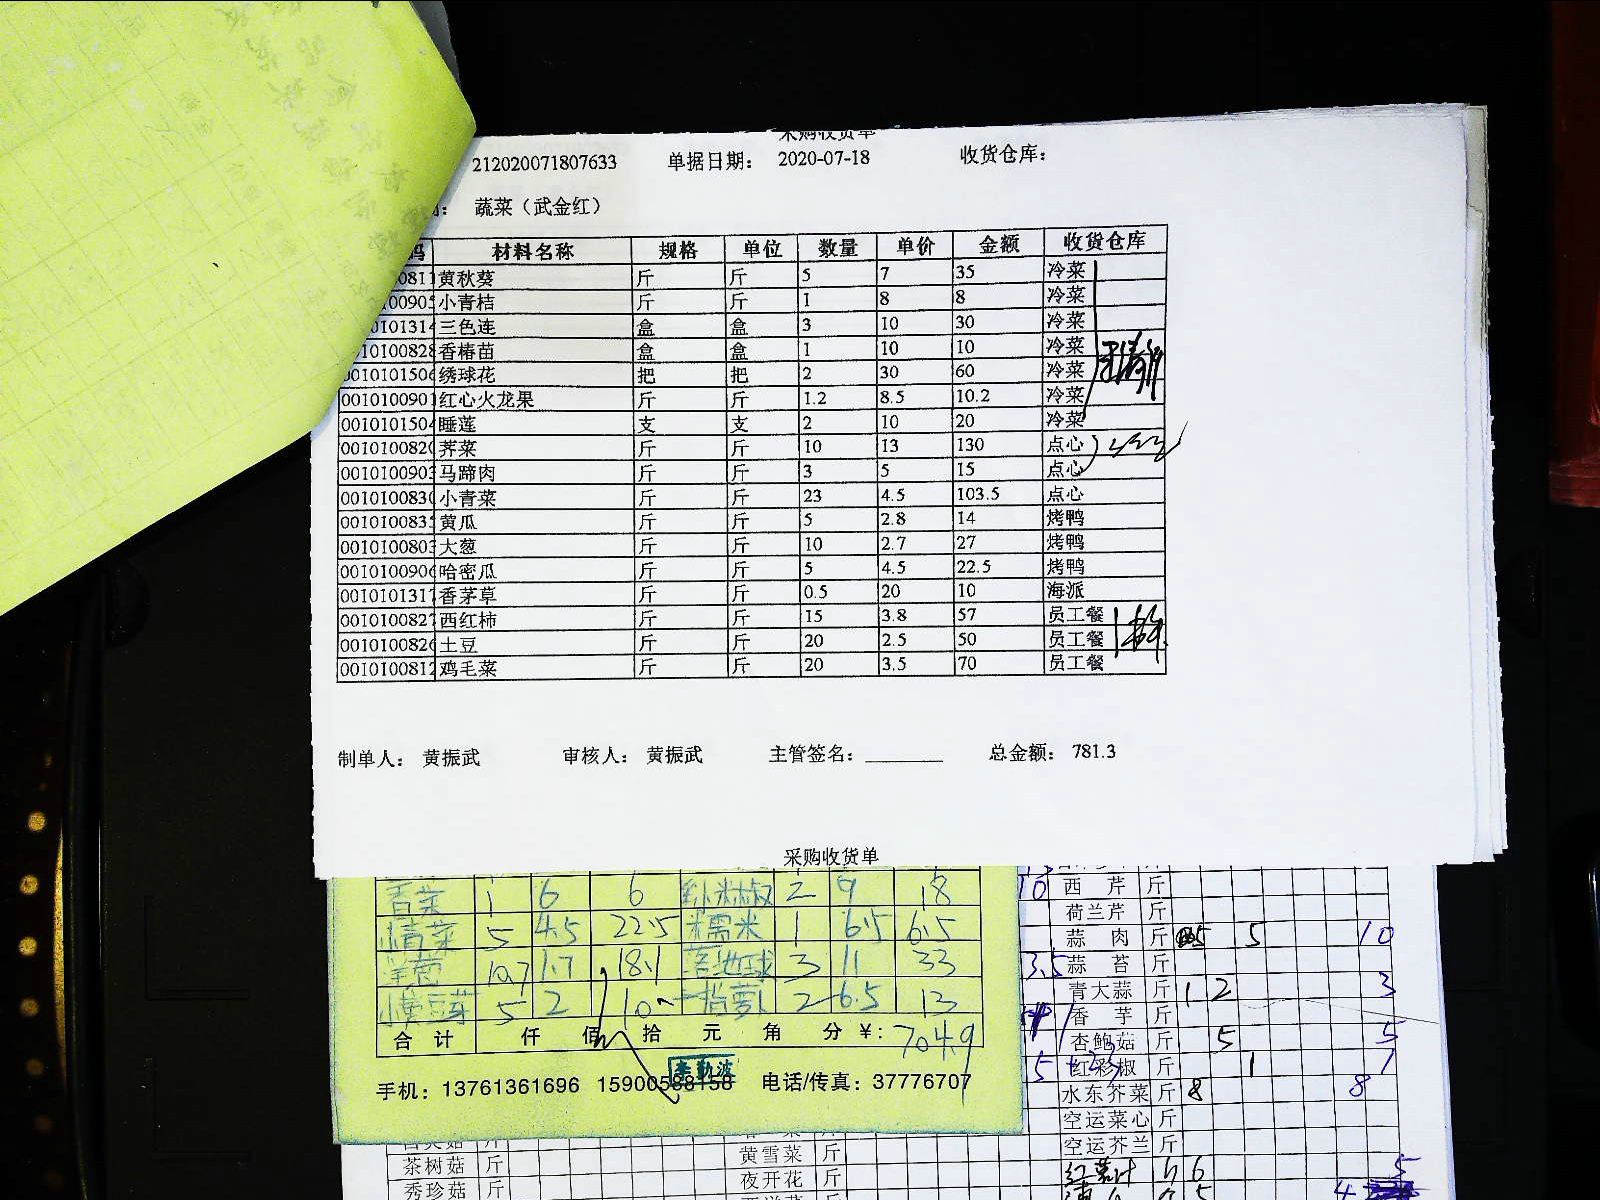 采购收货单
212020071807633 单据日期： 2020-07-18 收货仓库：
蔬菜（武金红）
码 材料名称 规格 单位 数量 单价 金额 收货仓库
0811 黄秋葵 斤 斤 5 7 35 冷菜
00905 小青桔 斤 斤 1 8 8 冷菜
0101314 三色连 盒 盒 3 10 30 冷菜
10100828 香椿苗 盒 盒 1 10 10 冷菜
0010101506 绣球花 把 把 2 30 60 冷菜
0010100901 红心火龙果 斤 斤 1.2 8.5 10.2 冷菜
0010101504 睡莲 支 支 2 10 20 冷菜
0010100820 荠菜 斤 斤 10 13 130 点心
0010100903 马蹄肉 斤 斤 3 5 15 点心
0010100830 小青菜 斤 斤 23 4.5 103.5 点心
0010100835 黄瓜 斤 斤 5 2.8 14 烤鸭
0010100803 大葱 斤 斤 10 2.7 27 烤鸭
0010100906 哈密瓜 斤 斤 5 4.5 22.5 烤鸭
0010101317 香茅草 斤 斤 0.5 20 10 海派
0010100827 西红柿 斤 斤 15 3.8 57 员工餐
0010100826 土豆 斤 斤 20 2.5 50 员工餐
0010100812 鸡毛菜 斤 斤 20 3.5 70 员工餐
制单人： 黄振武 审核人： 黄振武 主管签名： 总金额： 781.3
采购收货单
香菜 1 6 6 2 9 18
小青菜 5 4.5 22.5 糯米 1 6.5 6.5
洋葱 10.7 1.7 18.1 3 11 33
小黄豆芽 5 2 10 萝卜 2 6.5 13
合计 仟 佰 拾 元 角 分 ¥: 704.9
手机：13761361696 15900588158 电话/传真：37776707
10 西芹 斤
荷兰芹 斤
蒜肉 斤 5 5 10
3.5 蒜苔 斤
青大蒜 斤 1 2 3
香芋 斤
杏鲍菇 斤 5 5
5 红彩椒 斤 1 1
水东芥菜 斤 8 8
空运菜心 斤
空运芥兰 斤
茶树菇 斤 黄雪菜 斤
秀珍菇 斤 夜开花 斤